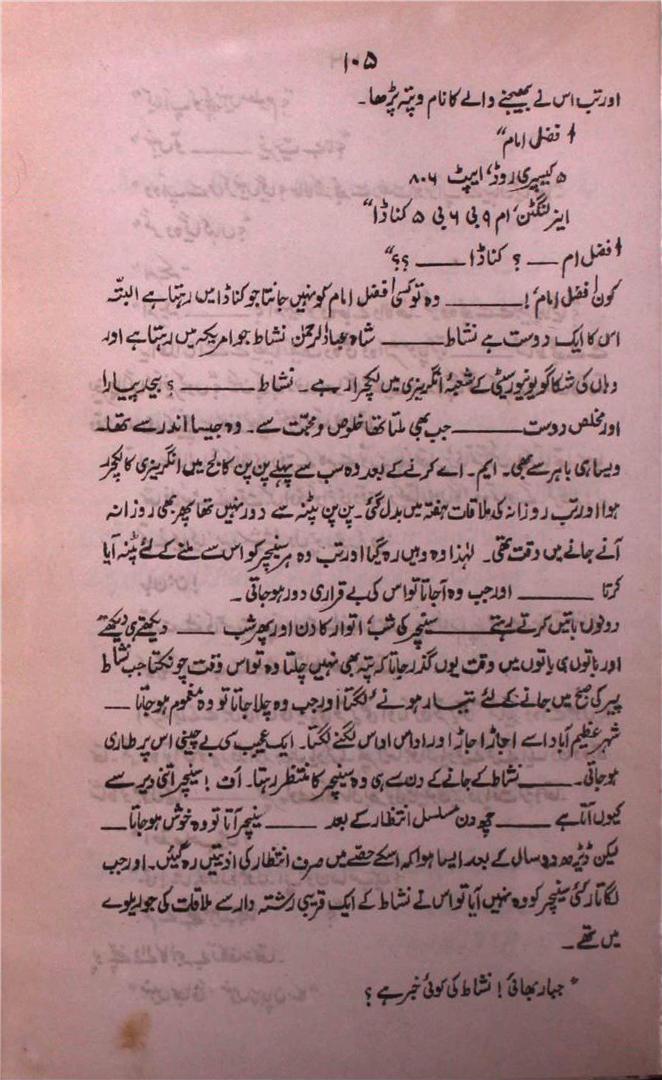 ۱۰۵
اور تب اس نے بھیجنے والے کا نام و پتہ پڑھا۔
" افضل امام"
۵ کیسپری روڈ، ایپٹ ۸۰۶
ایزلنگٹن، ام ۹ بی ۶ بی ۵ کناڈا"
"افضل ام ــــ ؟ کناڈا ــــــ ؟؟"
کون افضل امام! ــــــــ وہ تو کسی افضل امام کو نہیں جانتا جو کناڈا میں رہتا ہے البتّہ
اس کا ایک دوست ہے نشاط ــــــــ شاہ عبادُالرحمٰن نشاط جو امریکہ میں رہتا ہے اور
وہاں کی شکاگو یونیورسیٹی کے شعبۂ انگریزی میں لکچرار ہے۔ نشاط ــــــــ ؟ بیحد پیارا
اور مخلص دوست ــــــــ جب بھی ملتا تھا خلوص و محبّت سے۔ وہ جیسا اندر سے تھا۔
ویسا ہی باہر سے بھی۔ ایم۔ اے کرنے کے بعد وہ سب سے پہلے پن پن کالج میں انگریزی کا لکچرار
ہوا اور تب روزانہ کی ملاقات ہفتہ میں بدل گئی۔ پن پن پٹنہ سے دور نہیں تھا پھر بھی روزانہ
آنے جانے میں دقت تھی۔ لہٰذا وہ وہیں رہ گیا اور تب وہ ہر سنیچر کو اس سے ملنے کے لئے پٹنہ آیا
کرتا ــــــــ اور جب وہ آجاتا تو اس کی بے قراری دور ہو جاتی۔
دونوں باتیں کرتے رہتے ــــــــ سنیچر کی شب، اتوار کا دن اور پھر شب ــــــ دیکھتے ہی دیکھتے
اور باتوں ہی باتوں میں وقت یوں گذر جاتا کہ پتہ بھی نہیں چلتا وہ تو اس وقت چونکتا جب نشاط
پیر کی صبح میں جانے کے لئے تیار ہونے لگتا اور جب وہ چلا جاتا تو وہ مغموم ہو جاتا ــــ
شہر عظیم آباد اسے اجاڑ اجاڑ اور اداس اداس لگنے لگتا۔ ایک عجیب سی بے چینی اس پر طاری
ہو جاتی۔ ــــــــ نشاط کے جانے کے دن سے ہی وہ سنیچر کا منتظر رہتا۔ اُف! سنیچر اتنی دیر سے
کیوں آتا ہے ــــــــ چھ دن مسلسل انتظار کے بعد ــــــــ سنیچر آتا تو وہ خوش ہو جاتا ــــ
لیکن ڈیڑھ دو سال کے بعد ایسا ہوا کہ اسکے حصّے میں صرف انتظار کی اذیتیں رہ گئیں۔ اور جب
لگاتار کئی سنیچر کو وہ نہیں آیا تو اس نے نشاط کے ایک قریبی رشتہ دار سے ملاقات کی جو ریلوے
میں تھے۔
" جبار بھائی! نشاط کی کوئی خبر ہے؟